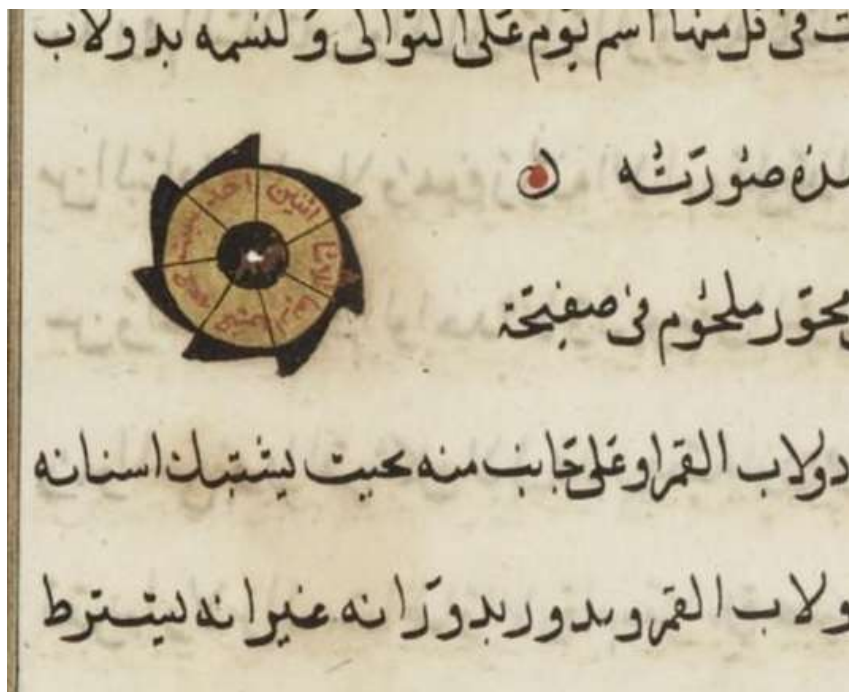 في كل منها اسم يوم على التوالي ولنسمه بدولاب
صورته
احد
اثنين
ثلاثا
اربعا
خميس
جمعه
سبت
محور ملحوم في صفيحة
دولاب القمر او على جانب منه بحيث يشتبك اسنانه
ولاب القمر ويدور بدورانه غير انه يشترط